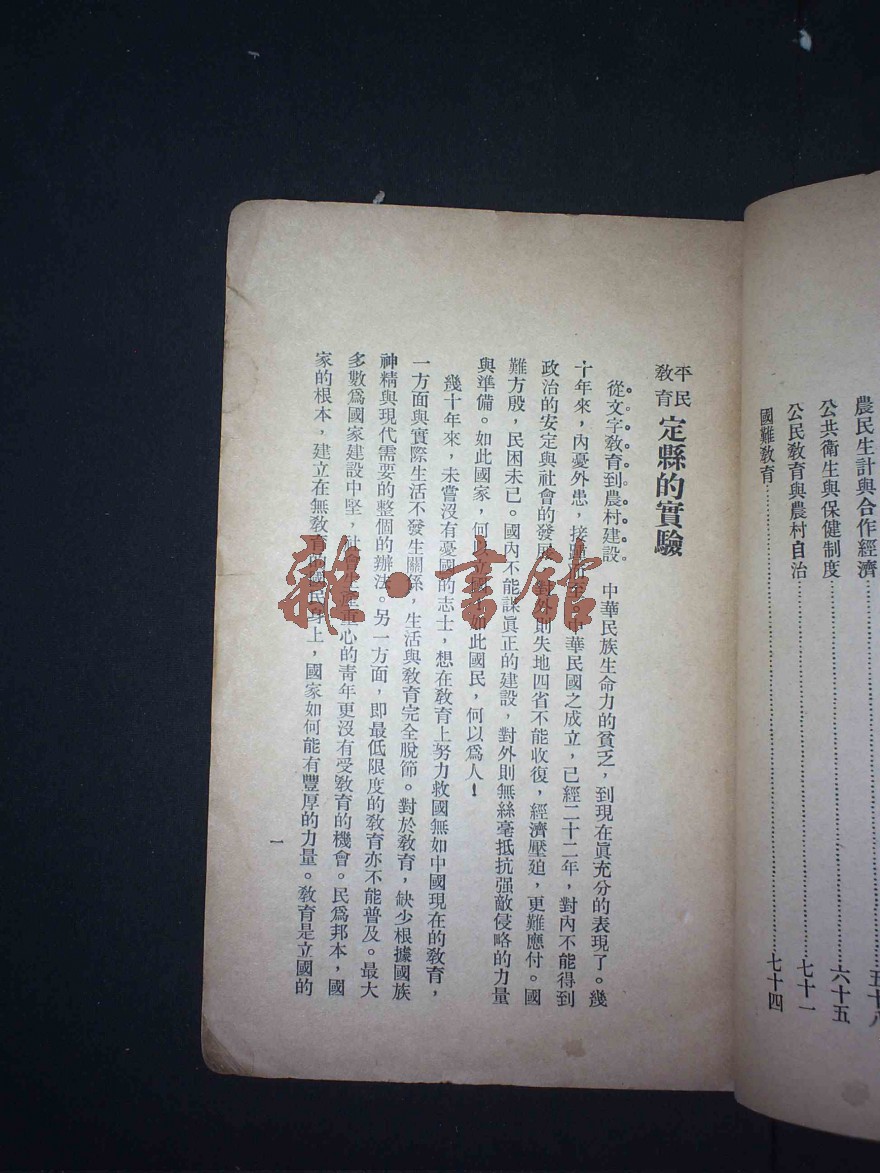 農民生計與合作經濟……五十八
公共衛生與保健制度……六十五
公民教育與農村自治……七十一
國難教育……七十四
平民教育 定縣的實驗
從文字教育到農村建設 中華民族生命力的貧乏，到現在眞充分的表現了。幾
十年來，內憂外患，接踵而至，中華民國之成立，已經二十二年，對內不能得到
政治的安定與社會的發展，對外則失地四省不能收復，經濟壓廹，更難應付。國
難方殷，民困未已。國內不能謀眞正的建設，對外則無絲毫抵抗强敵侵略的力量
與準備。如此國家，何以立國如此國民，何以爲人！
幾十年來，未嘗沒有憂國的志士，想在教育上努力救國無如中國現在的教育，
一方面與實際生活不發生關係，生活與教育完全脫節。對於教育，缺少根據國族
神精與現代需要的整個的辦法。另一方面，卽最低限度的教育亦不能普及。最大
多數爲國家建設中堅，社會生產重心的靑年更沒有受教育的機會。民爲邦本，國
家的根本，建立在無教育的國民身上，國家如何能有豐厚的力量。教育是立國的
一
雜·書館